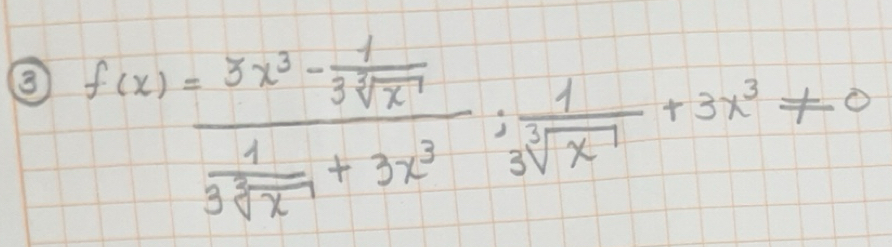 ③ f(x) = \frac{3x^3 - \frac{1}{3\sqrt[3]{x}}}{\frac{1}{3\sqrt[3]{x}} + 3x^3} ; \frac{1}{3\sqrt[3]{x}} + 3x^3 ≠ 0